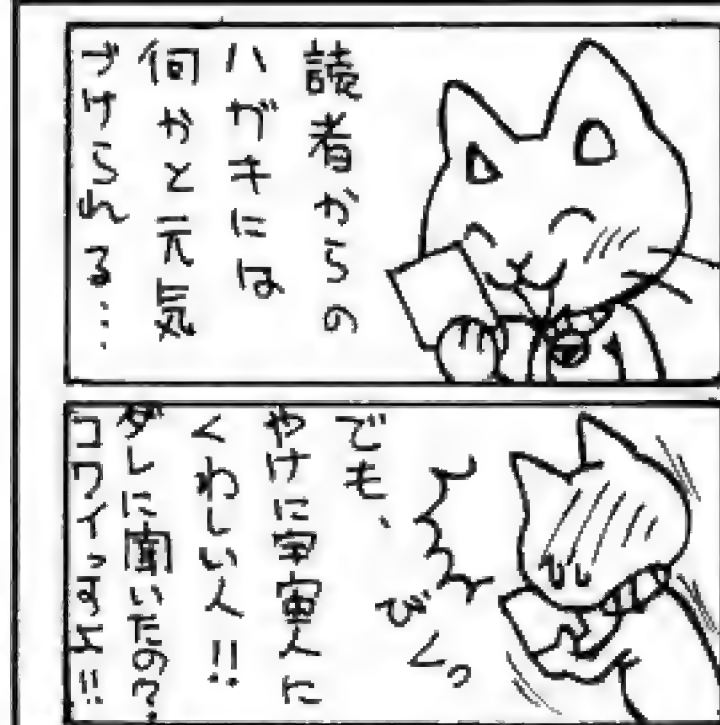 読者からの
ハガキには
何かと元気
づけられる…
でも、
やけに宇宙人に
くわしい人!!
ダレに聞いたの?
コワイっすよ!!
びくっ